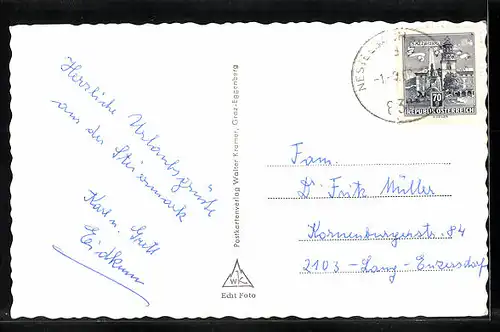 Herzliche Urlaubsgrüße
aus der Steiermark
Karl u. Gretl
Postkartenverlag Walter Kramer, Graz-Eggenberg
WK
Echt Foto
NESTEL
-1.-9.
83
70
REPUBLIK ÖSTERREICH
Fam.
Dr. Fritz Müller
Korneuburgerstr. 84
2103 - Lang-Enzersdorf